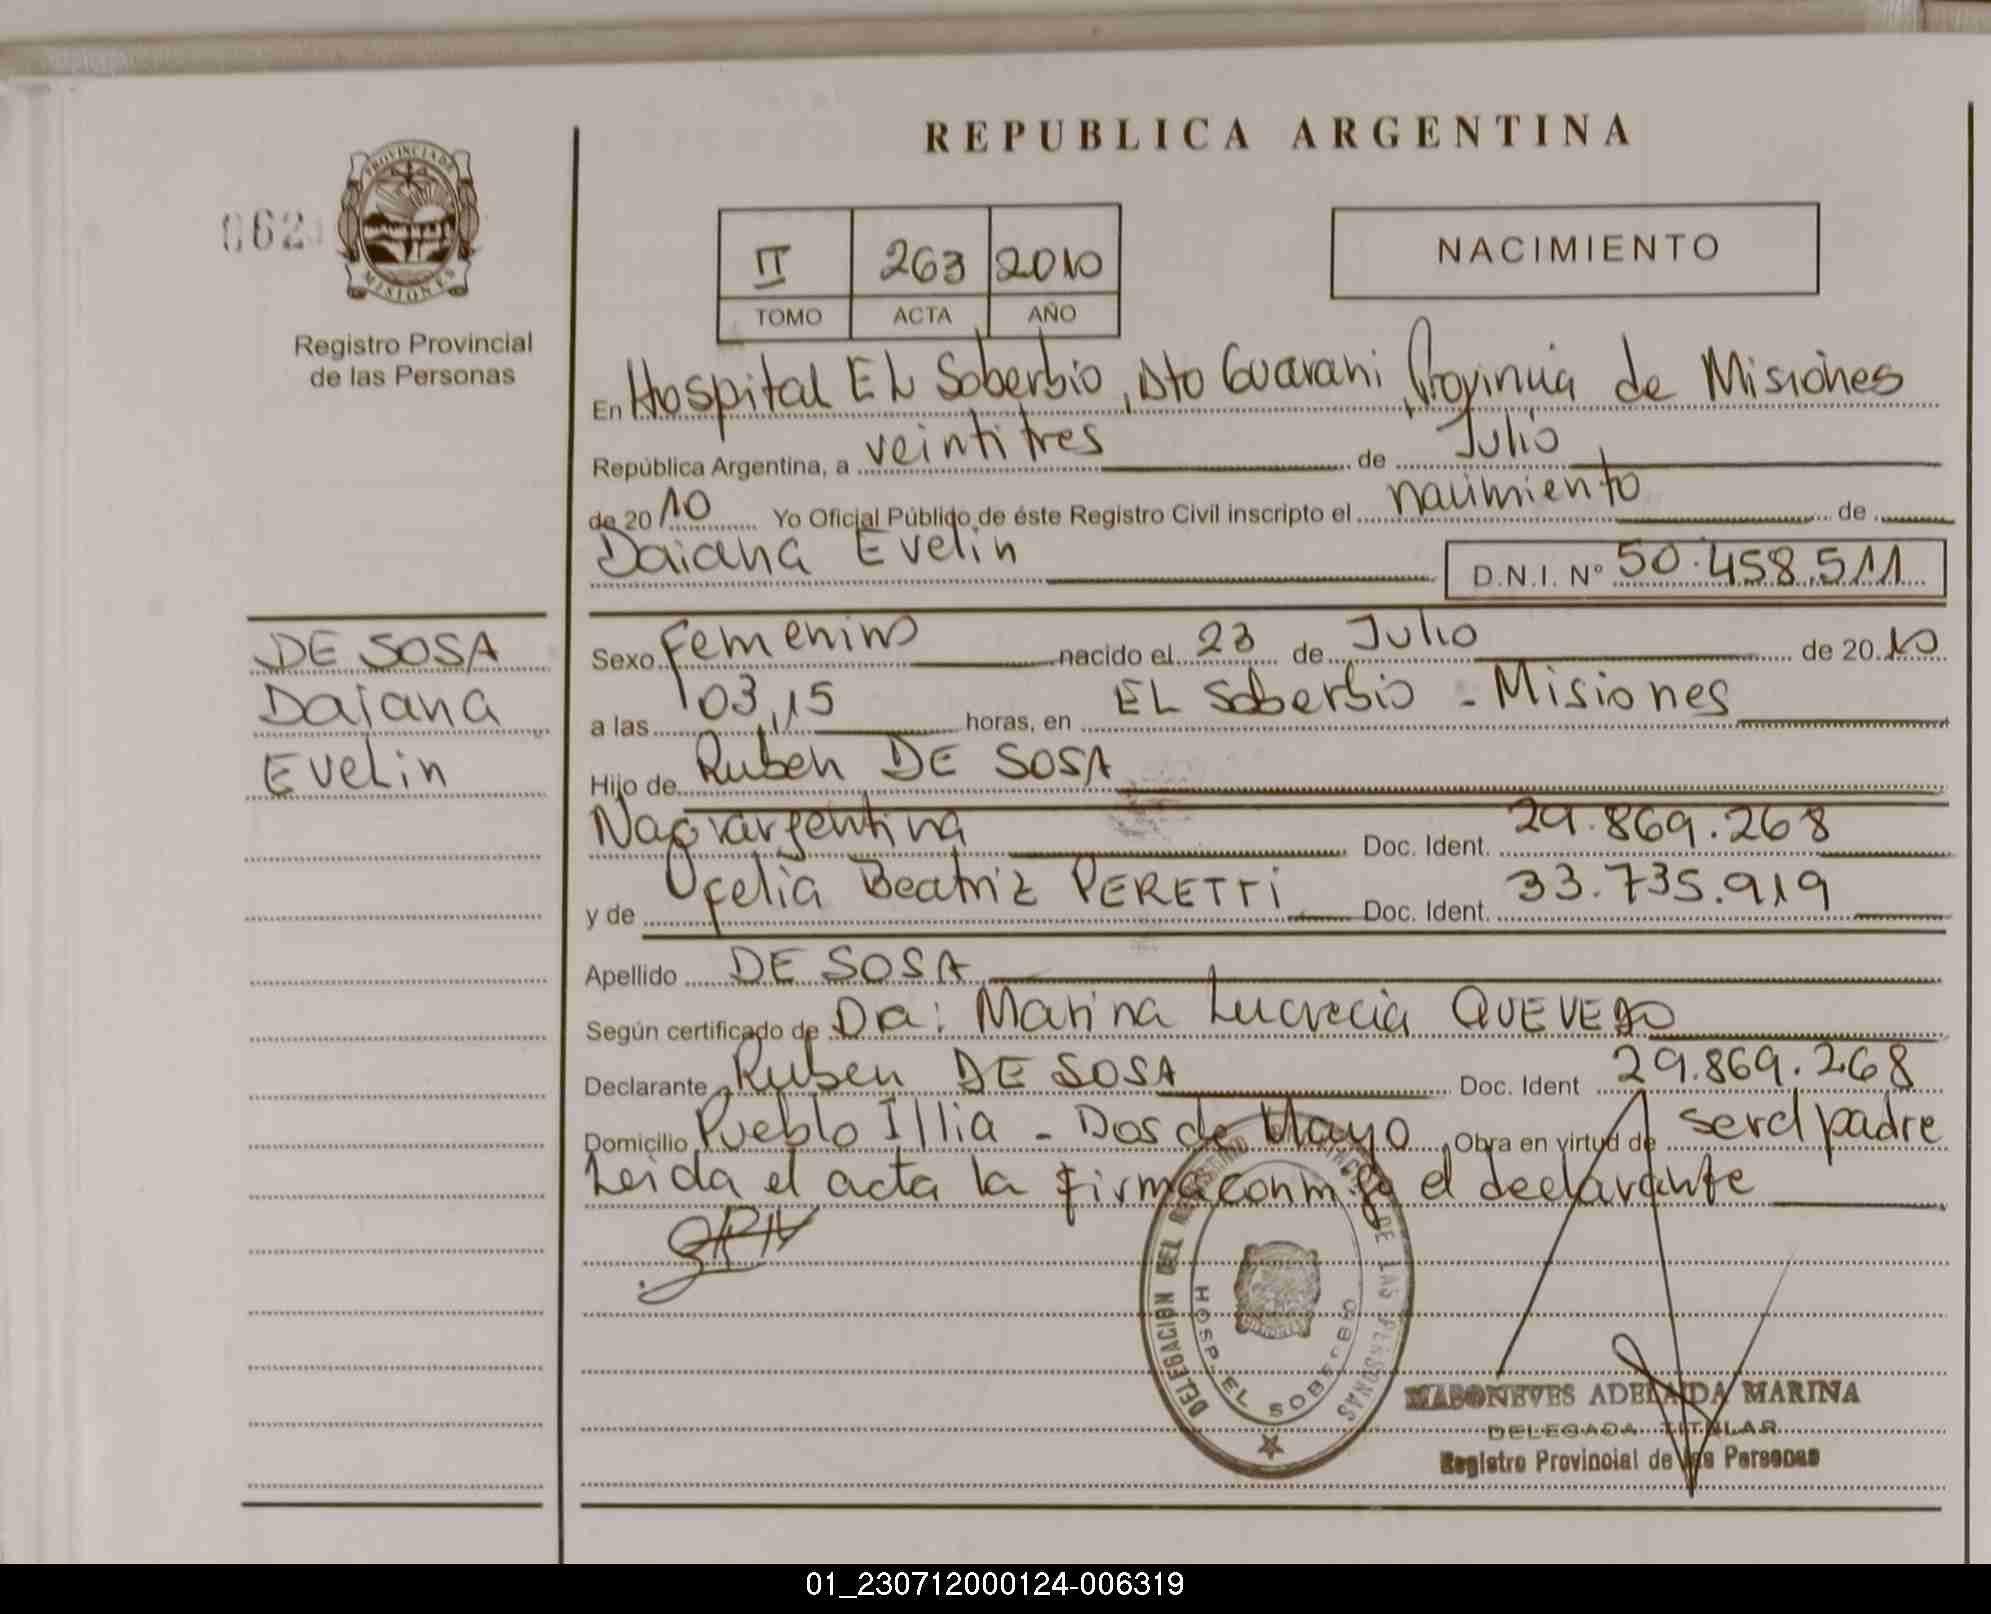 REPUBLICA ARGENTINA
062
PROVINCIA DE
MISIONES
Registro Provincial
de las Personas
II 263 2010
TOMO ACTA AÑO
NACIMIENTO
En Hospital EL Soberbio, Dto Guarani, Provincia de Misiones
República Argentina, a veintitres de Julio
de 2010 Yo Oficial Público de éste Registro Civil inscripto el nacimiento de
Daiana Evelin D.N.I. Nº 50.458.511
DE SOSA
Daiana
Evelin
Sexo Femenino nacido el 23 de Julio de 2010
a las 03,15 horas, en EL Soberbio - Misiones
Hijo de Ruben DE SOSA
Nac argentina Doc. Ident. 29.869.268
y de Ofelia Beatriz PERETTI Doc. Ident. 33.735.919
Apellido DE SOSA
Según certificado de Dra: Marina Lucrecia QUEVEDO
Declarante Ruben DE SOSA Doc. Ident 29.869.268
Domicilio Pueblo Illia - Dos de Mayo Obra en virtud de ser el padre
Leida el acta la firma conmigo el declarante
DELEGACION DEL REGISTRO PROVINCIAL DE LAS PERSONAS
HOSP. EL SOBERBIO
ADELAIDA MARINA
DELEGADA TITULAR
Registro Provincial de las Personas
01_230712000124-006319